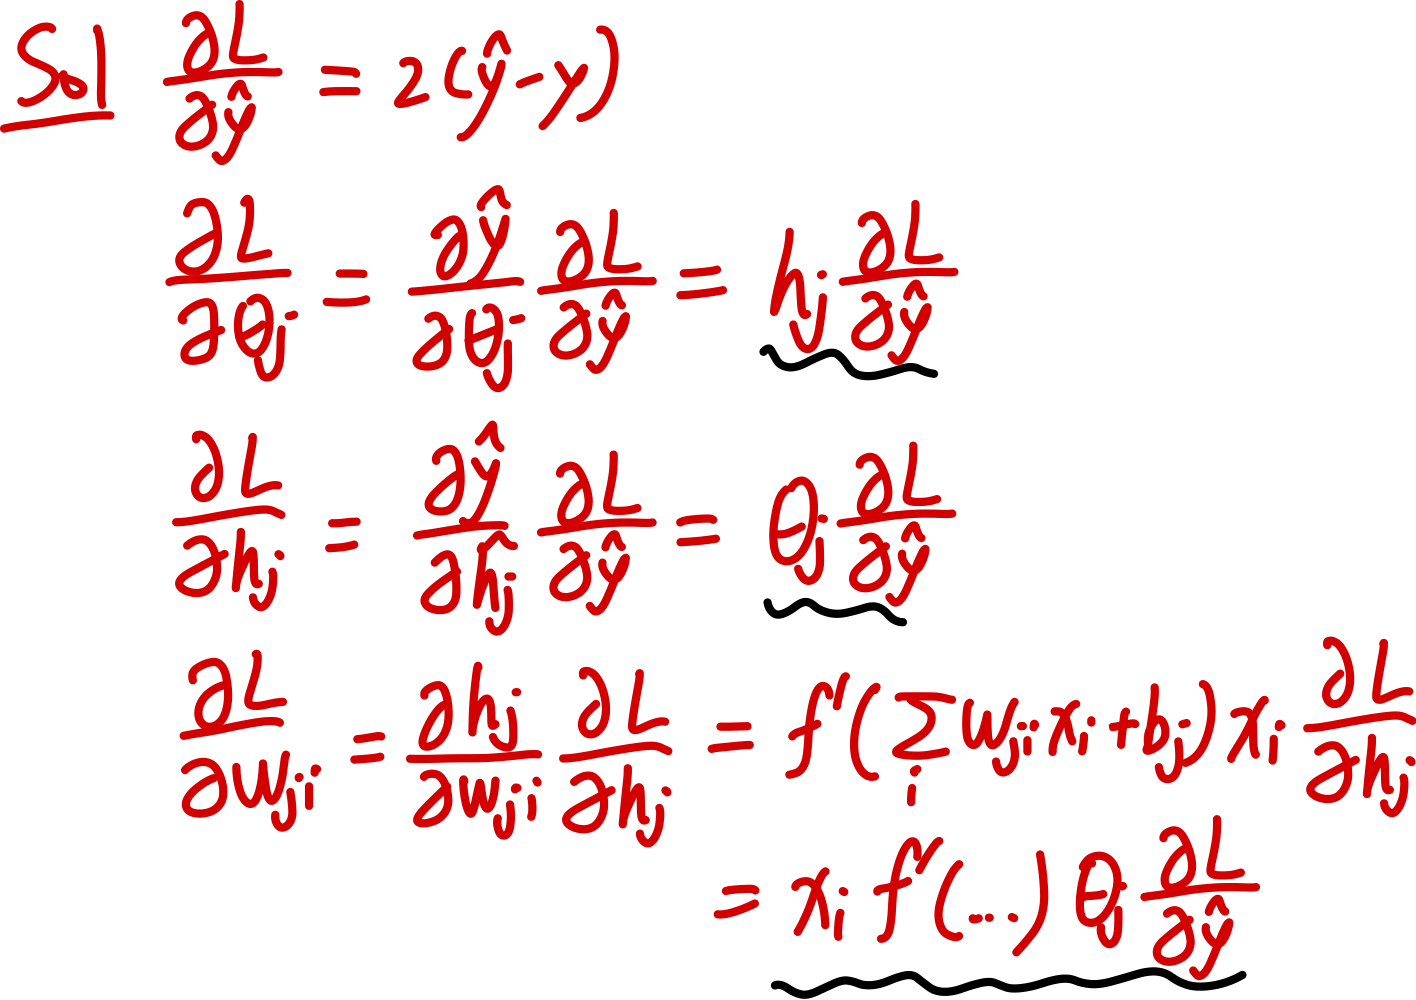 Sol ∂L/∂ŷ = 2(ŷ-y)
∂L/∂θj = ∂ŷ/∂θj ∂L/∂ŷ = hj ∂L/∂ŷ
∂L/∂hj = ∂ŷ/∂hj ∂L/∂ŷ = θj ∂L/∂ŷ
∂L/∂wji = ∂hj/∂wji ∂L/∂hj = f'(∑i wji xi + bj) xi ∂L/∂hj
= xi f'(...) θj ∂L/∂ŷ